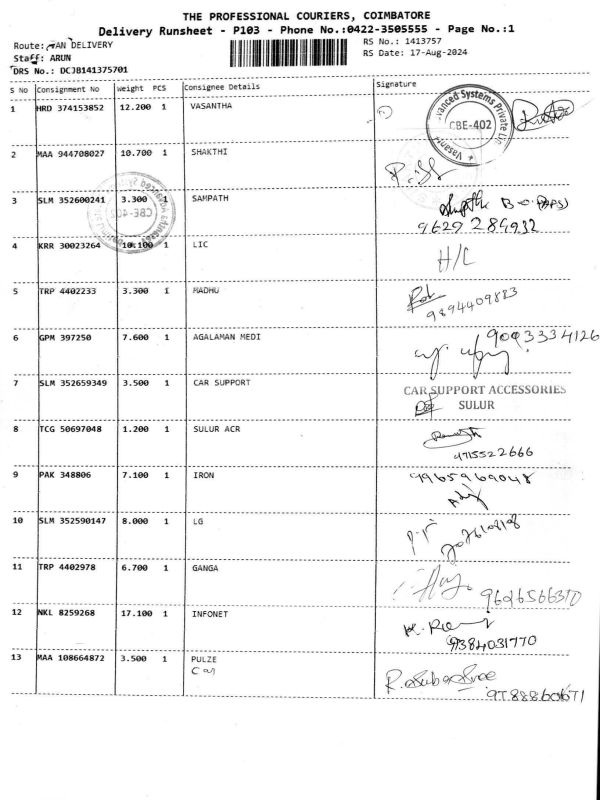 THE PROFESSIONAL COURIERS, COIMBATORE
Delivery Runsheet - P103 - Phone No.:0422-3505555 - Page No.:1
Route: DELIVERY
RS No.: 1413757
Staff: ARUN
RS Date: 17-Aug-2024
DRS No.: DCJB141375701
S No Consignment No Weight PCS Consignee Details Signature
1 HRD 374153852 12.200 1 VASANTHA
CBE-402
2 MAA 944708027 10.700 1 SHAKTHI
3 SLM 352600241 3.300 1 SAMPATH
9629 289932
4 KRR 30023264 10.100 1 LIC
H/C
5 TRP 4402233 3.300 1 MADHU
9894409883
6 GPM 397250 7.600 1 AGALAMAN MEDI
9003334126
7 SLM 352659349 3.500 1 CAR SUPPORT
CAR SUPPORT ACCESSORIES
SULUR
8 TCG 50697048 1.200 1 SULUR ACR
9715522666
9 PAK 348806 7.100 1 IRON
9965969048
10 SLM 352590147 8.000 1 LG
11 TRP 4402978 6.700 1 GANGA
9626566370
12 NKL 8259268 17.100 1 INFONET
9384031770
13 MAA 108664872 3.500 1 PULZE
Car